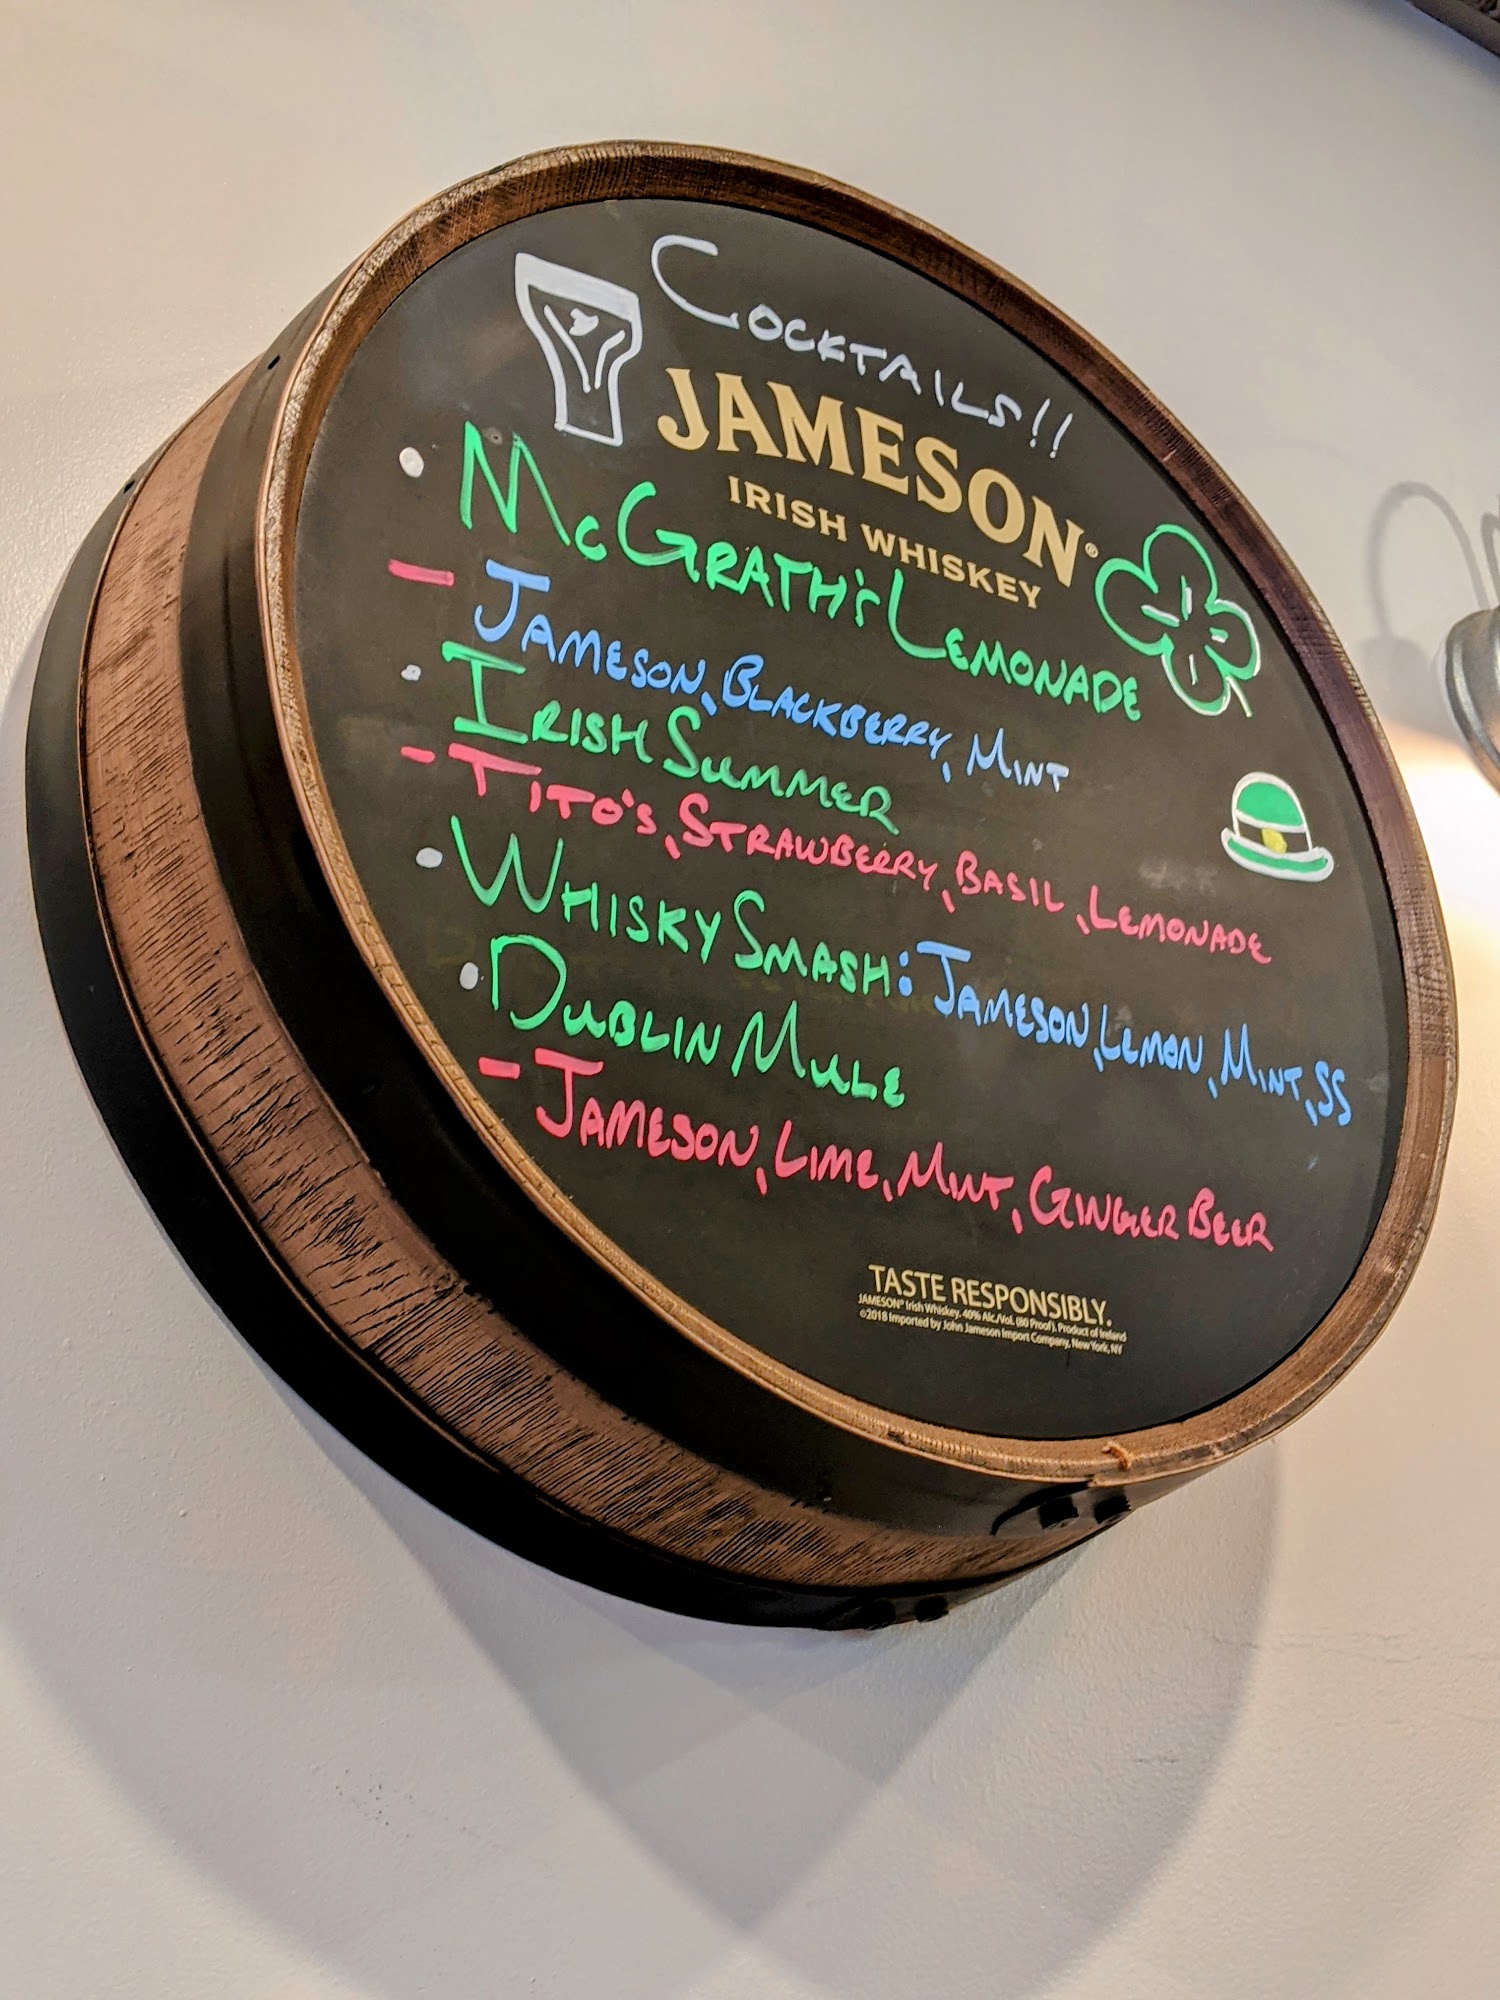 COCKTAILS!!
JAMESON®
IRISH WHISKEY
• McGRATH'S LEMONADE
- JAMESON, BLACKBERRY, MINT
• IRISH SUMMER
- TITO'S, STRAWBERRY, BASIL, LEMONADE
• WHISKY SMASH: JAMESON, LEMON, MINT, SS
• DUBLIN MULE
- JAMESON, LIME, MINT, GINGER BEER
TASTE RESPONSIBLY.
JAMESON® Irish Whiskey. 40% Alc./Vol. (80 Proof). Product of Ireland
©2018 Imported by John Jameson Import Company, New York, NY